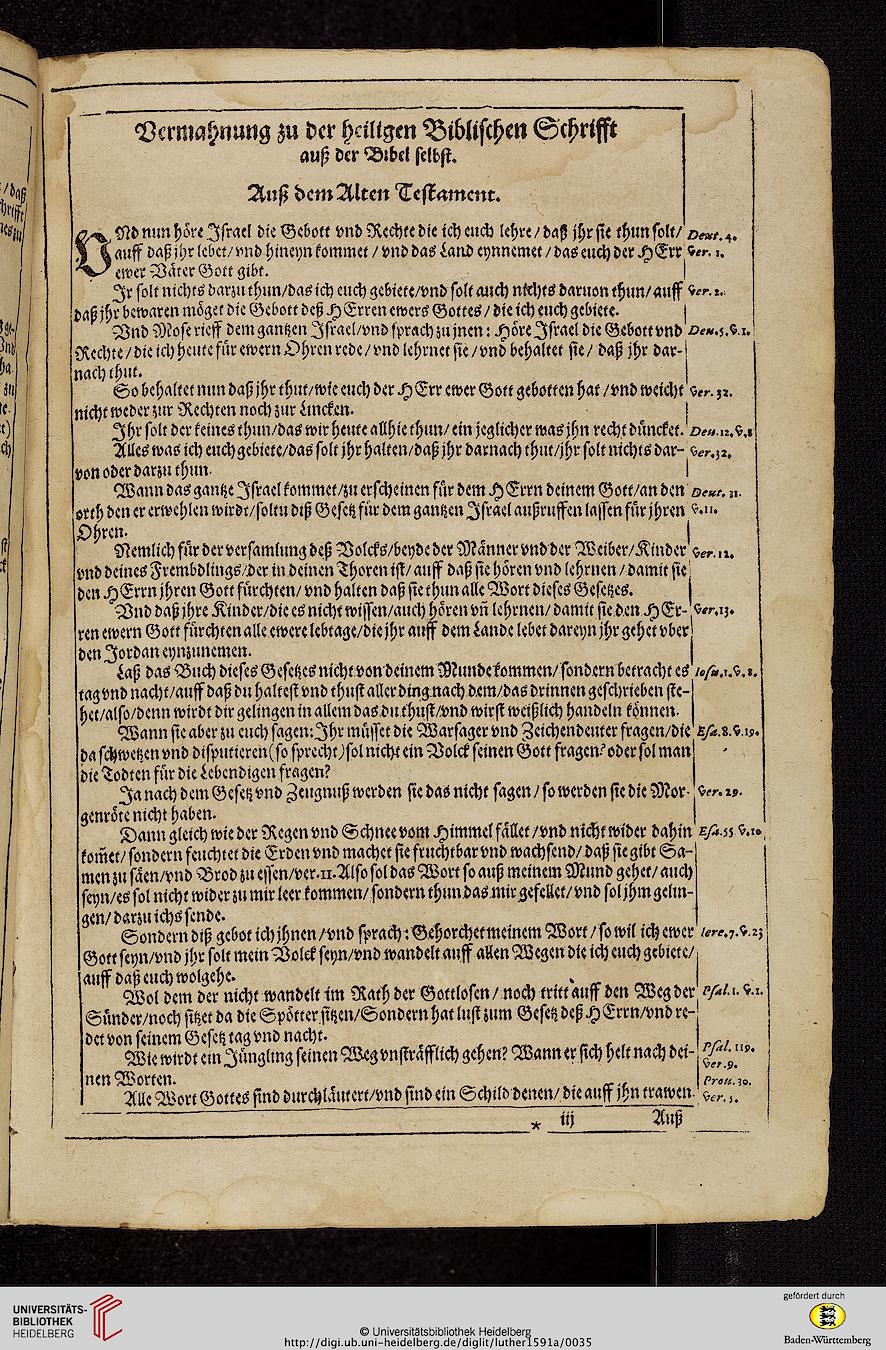 Vermahnung zu der heiligen Biblischen Schrifft
auß der Bibel selbst.
Auß dem Alten Testament.
VNd nun höre Israel die Gebott vnd Rechte die ich euch lehre / daß jhr sie thun solt / Deut. 4.
auff daß jhr lebet / vnd hineyn kommet / vnd das Land eynnemet / das euch der HErr ver. 1.
ewer Väter Gott gibt.
Ir solt nichts darzu thun / das ich euch gebiete / vnd solt auch nichts daruon thun / auff ver. 2.
daß jhr bewaren möget die Gebott deß HErren ewers Gottes / die ich euch gebiete.
Vnd Mose rieff dem gantzen Israel / vnd sprach zu jnen : Höre Israel die Gebott vnd Deu. 5. v. 1.
Rechte / die ich heute für ewern Ohren rede / vnd lehrnet sie / vnd behaltet sie / daß jhr dar-
nach thut.
So behaltet nun daß jhr thut / wie euch der HErr ewer Gott gebotten hat / vnd weicht ver. 32.
nicht weder zur Rechten noch zur Lincken.
Ihr solt der keines thun / das wir heute allhie thun / ein jeglicher was jhn recht düncket. Deu. 12. v. 8
Alles was ich euch gebiete / das solt jhr halten / daß jhr darnach thut / jhr solt nichts dar- ver. 32.
von oder darzu thun.
Wann das gantze Israel kommet / zu erscheinen für dem HErrn deinem Gott / an den Deut. 31.
orth den er erwehlen wirdt / soltu diß Gesetz für dem gantzen Israel außruffen lassen für jhren v. 11.
Ohren.
Nemlich für der versamlung deß Volcks / beyde der Männer vnd der Weiber / Kinder ver. 12.
vnd deines Frembdlings / der in deinen Thoren ist / auff daß sie hören vnd lehrnen / damit sie
den HErrn jhren Gott fürchten / vnd halten daß sie thun alle Wort dieses Gesetzes.
Vnd daß jhre Kinder / die es nicht wissen / auch hören vn̄ lehrnen / damit sie den HEr- ver. 13.
ren ewern Gott fürchten alle ewere lebtage / die jhr auff dem Lande lebet dareyn jhr gehet vber
den Jordan eynzunemen.
Laß das Buch dieses Gesetzes nicht von deinem Munde kommen / sondern betracht es Iosu. 1. v. 8.
tag vnd nacht / auff daß du haltest vnd thust aller ding nach dem / das drinnen geschrieben ste-
het / also / denn wirdt dir gelingen in allem das du thust / vnd wirst weißlich handeln können.
Wann sie aber zu euch sagen: Ihr müsset die Warsager vnd Zeichendeuter fragen / die Esa. 8. v. 19.
da schwetzen vnd disputieren (so sprecht) sol nicht ein Volck seinen Gott fragen? oder sol man
die Todten für die Lebendigen fragen?
Ja nach dem Gesetz vnd Zeugnuß werden sie das nicht sagen / so werden sie die Mor- ver. 29.
genröte nicht haben.
Dann gleich wie der Regen vnd Schnee vom Himmel fället / vnd nicht wider dahin Esa. 55 v. 10
kom̄et / sondern feuchtet die Erden vnd machet sie fruchtbar vnd wachsend / daß sie gibt Sa-
men zu säen / vnd Brod zu essen / ver. 11. Also sol das Wort so auß meinem Mund gehet / auch
seyn / es sol nicht wider zu mir leer kommen / sondern thun das mir gefellet / vnd sol jhm gelin-
gen / darzu ichs sende.
Sondern diß gebot ich jhnen / vnd sprach : Gehorchet meinem Wort / so wil ich ewer Iere. 7. v. 23
Gott seyn / vnd jhr solt mein Volck seyn / vnd wandelt auff allen Wegen die ich euch gebiete /
auff daß euch wolgehe.
Wol dem der nicht wandelt im Rath der Gottlosen / noch tritt auff den Weg der Psal. 1. v. 1.
Sünder / noch sitzet da die Spötter sitzen / Sondern hat lust zum Gesetz deß HErrn / vnd re-
det von seinem Gesetz tag vnd nacht.
Wie wirdt ein Jüngling seinen Weg vnsträfflich gehen? Wann er sich helt nach dei- Psal. 119.
ver. 9.
nen Worten. Prou. 30.
Alle Wort Gottes sind durchläutert / vnd sind ein Schild denen / die auff jhn trawen. ver. 5.
* iij Auß
UNIVERSITÄTS-
BIBLIOTHEK
HEIDELBERG
© Universitätsbibliothek Heidelberg
http://digi.ub.uni-heidelberg.de/diglit/luther1591a/0035
gefördert durch
Baden-Württemberg